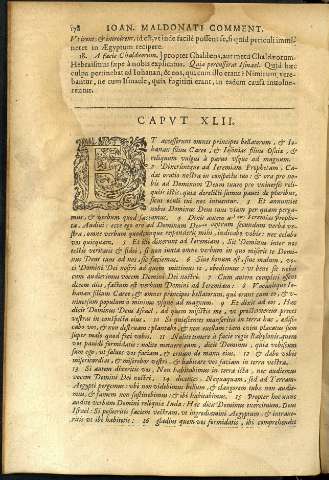 178 IOAN. MALDONATI COMMENT.
Vt irent: & introirent, id est, vt inde facile possent se, si quid periculi immi-
neret in Ægyptum recipere.
18. A facie Chaldæorum,] propter Chaldæos, aut metu Chaldæorum.
Hebraismus sæpe à nobis explicatus. Quia percusserat Ismael. Quid hæc
culpa pertinebat ad Iohanan, & eos, qui cum illo erant? Nimirum vere-
bantur, ne cum Ismaele, quia fugitiui erant, in eadem causa inuolue-
rentur.
CAPVT XLII.
ET accesserunt omnes principes bellatorum, & Io-
hanan filius Caree, & Iezonias filius Osaiæ, &
reliquum vulgus à paruo vsque ad magnum.
2 Dixeruntque ad Ieremiam Prophetam. Ca-
dat oratio nostra in conspectu tuo: & ora pro no-
bis ad Dominum Deum tuum pro vniuersis reli-
quiis istis, quia derelicti sumus pauci de pluribus,
sicut oculi tui nos intuentur. 3 Et annuntiet
nobis Dominus Deus tuus viam per quam perga-
mus, & verbum quod faciamus. 4 Dixit autem ad eos Ieremias prophe-
ta. Audiui: ecce ego oro ad Dominum Deum vestrum secundum verba ve-
stra, omne verbum quodcunque responderit mihi, indicabo vobis: nec celabo
vos quicquam. 5 Et illi dixerunt ad Ieremiam. Sit Dominus inter nos
testis veritatis & fidei, si non iuxta omne verbum in quo miserit te Domi-
nus Deus tuus ad nos, sic faciemus. 6 Siue bonum est, siue malum, vo-
ci Domini Dei nostri ad quem mittimus te, obediemus: vt bene sit nobis
cum audierimus vocem Domini Dei nostri. 7 Cum autem completi essent
decem dies, factum est verbum Domini ad Ieremiam. 8 Vocauitque Io-
hanan filium Caree, & omnes principes bellatorum, qui erant cum eo, & v-
niuersum populum à minimo vsque ad magnum. 9 Et dixit ad eos. Hæc
dicit Dominus Deus Israel, ad quem misistis me, vt prosternerem preces
vestras in conspectu eius. 10 Si quiescentes manseritis in terra hac: ædifi-
cabo vos, & non destruam: plantabo, & non euellam: iam enim placatus sum
super malo quod feci vobis. 11 Nolite timere à facie regis Babylonis, quem
vos pauidi formidatis: nolite metuere eum, dicit Dominus, quia vobiscum
sum ego, vt saluos vos faciam, & eruam de manu eius. 12 & dabo vobis
misericordias, & miserebor vestri, & habitare vos faciam in terra vestra.
13 Si autem dixeritis vos. Non habitabimus in terra ista, nec audiemus
vocem Domini Dei nostri, 14 dicentes. Nequaquam, sed ad Terram
Ægypti pergemus: vbi non videbimus bellum, & clangorem tubæ non audie-
mus, & famem non sustinebimus: & ibi habitabimus. 15 Propter hoc nunc
audite verbum Domini reliquiæ Iuda: Hæc dicit Dominus exercituum, Deus
Israel: Si posueritis faciem vestram, vt ingrediamini Ægyptum, & intraue-
ritis vt ibi habitetis: 16 gladius quem vos formidatis, ibi comprehendet